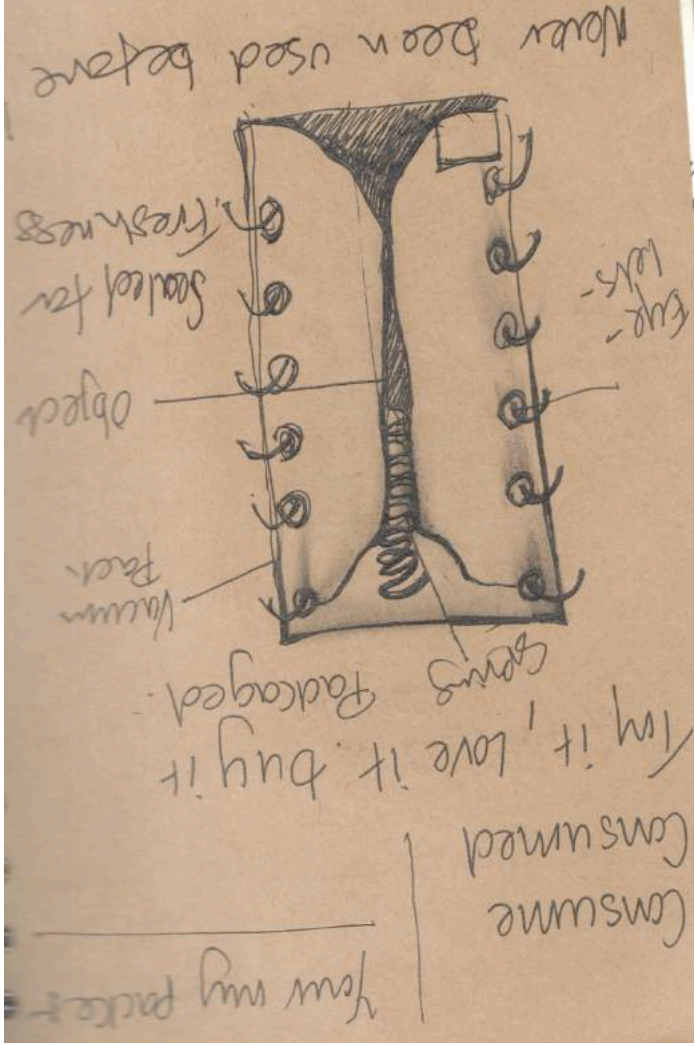 Your my packet
Consume
Consumed
Try it, love it. buy it
Packaged.
Spring
Vacuum
Pack
Object
Eye-
lets-
Sealed for
Freshness
Never been used before